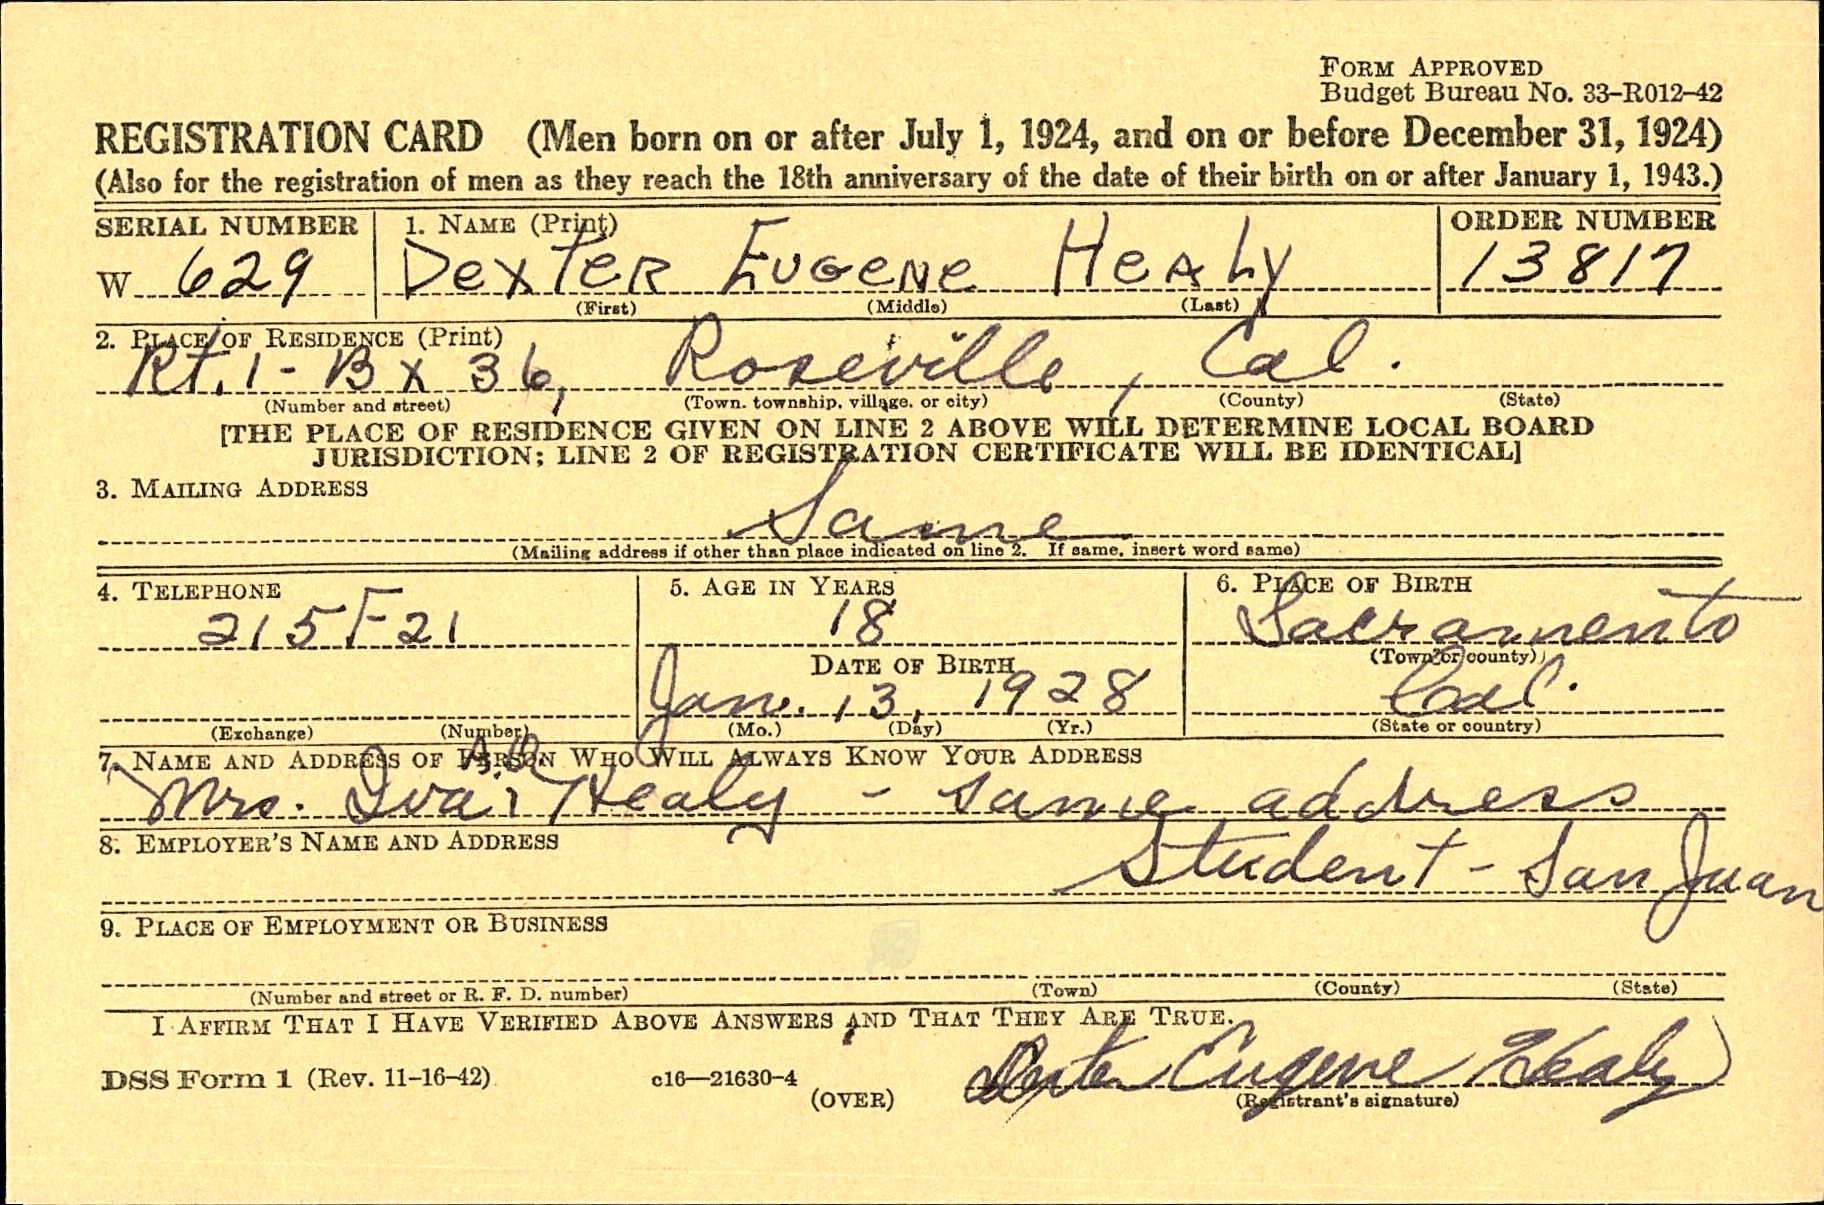 FORM APPROVED
Budget Bureau No. 33-R012-42
REGISTRATION CARD (Men born on or after July 1, 1924, and on or before December 31, 1924)
(Also for the registration of men as they reach the 18th anniversary of the date of their birth on or after January 1, 1943.)
SERIAL NUMBER 1. NAME (Print) ORDER NUMBER
W 629 DEXTER EUGENE HEALY 13817
(First) (Middle) (Last)
2. PLACE OF RESIDENCE (Print)
Rt. 1 - Bx 36, Roseville, Cal.
(Number and street) (Town, township, village, or city) (County) (State)
[THE PLACE OF RESIDENCE GIVEN ON LINE 2 ABOVE WILL DETERMINE LOCAL BOARD
JURISDICTION; LINE 2 OF REGISTRATION CERTIFICATE WILL BE IDENTICAL]
3. MAILING ADDRESS
Same
(Mailing address if other than place indicated on line 2. If same, insert word same)
4. TELEPHONE 5. AGE IN YEARS 6. PLACE OF BIRTH
215F21 18 Sacramento
DATE OF BIRTH (Town or county)
Jan. 13, 1928 Cal.
(Exchange) (Number) (Mo.) (Day) (Yr.) (State or country)
7. NAME AND ADDRESS OF PERSON WHO WILL ALWAYS KNOW YOUR ADDRESS
Mrs. Iva Healy - same address
8. EMPLOYER'S NAME AND ADDRESS
Student - San Juan
9. PLACE OF EMPLOYMENT OR BUSINESS
(Number and street or R. F. D. number) (Town) (County) (State)
I AFFIRM THAT I HAVE VERIFIED ABOVE ANSWERS AND THAT THEY ARE TRUE.
DSS Form 1 (Rev. 11-16-42) c16—21630-4 (OVER) Dexter Eugene Healy
(Registrant's signature)